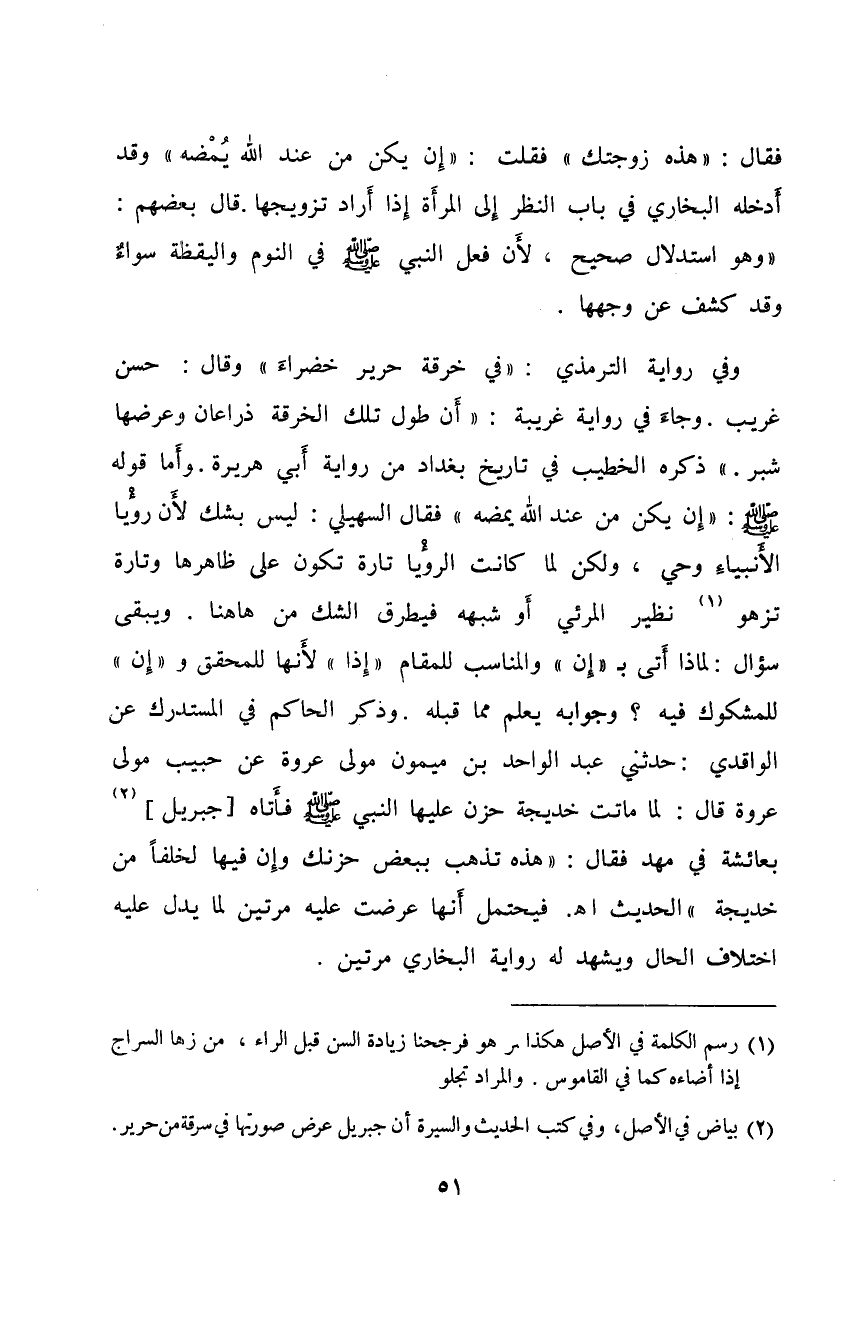 فقال : «هذه زوجتك » فقلت : «إن يكن من عند الله يُمْضه » وقد
أدخله البخاري في باب النظر إلى المرأة إذا أراد تزويجها .قال بعضهم :
«وهو استدلال صحيح ، لأن فعل النبي ﷺ في النوم واليقظة سواءٌ
وقد كشف عن وجهها .
وفي رواية الترمذي : «في خرقة حرير خضراءَ » وقال : حسن
غريب . وجاءَ في رواية غريبة : « أن طول تلك الخرقة ذراعان وعرضها
شبر . » ذكره الخطيب في تاريخ بغداد من رواية أبي هريرة . وأما قوله
ﷺ : «إن يكن من عند الله يمضه » فقال السهيلي : ليس بشك لأن رؤيا
الأنبياء وحي ، ولكن لما كانت الرؤيا تارة تكون على ظاهرها وتارة
تزهو (١) نظير المرئي أو شبهه فيطرق الشك من هاهنا . ويبقى
سؤال : لماذا أتى بـ «إن » والمناسب للمقام «إذا » لأنها للمحقق و «إن »
للمشكوك فيه ؟ وجوابه يعلم مما قبله . وذكر الحاكم في المستدرك عن
الواقدي : حدثني عبد الواحد بن ميمون مولى عروة عن حبيب مولى
عروة قال : لما ماتت خديجة حزن عليها النبي ﷺ فأتاه [جبريل ] (٢)
بعائشة في مهد فقال : «هذه تذهب ببعض حزنك وإن فيها لخلفاً من
خديجة »الحديث اهـ. فيحتمل أنها عرضت عليه مرتين لما يدل عليه
اختلاف الحال ويشهد له رواية البخاري مرتين .
(١) رسم الكلمة في الأصل هكذا ىر هو فرجحنا زيادة السن قبل الراء ، من زها السراج
إذا أضاءه كما في القاموس . والمراد تجلو
(٢) بياض في الأصل، وفي كتب الحديث والسيرة أن جبريل عرض صورتها في سرقة من حرير .
٥١